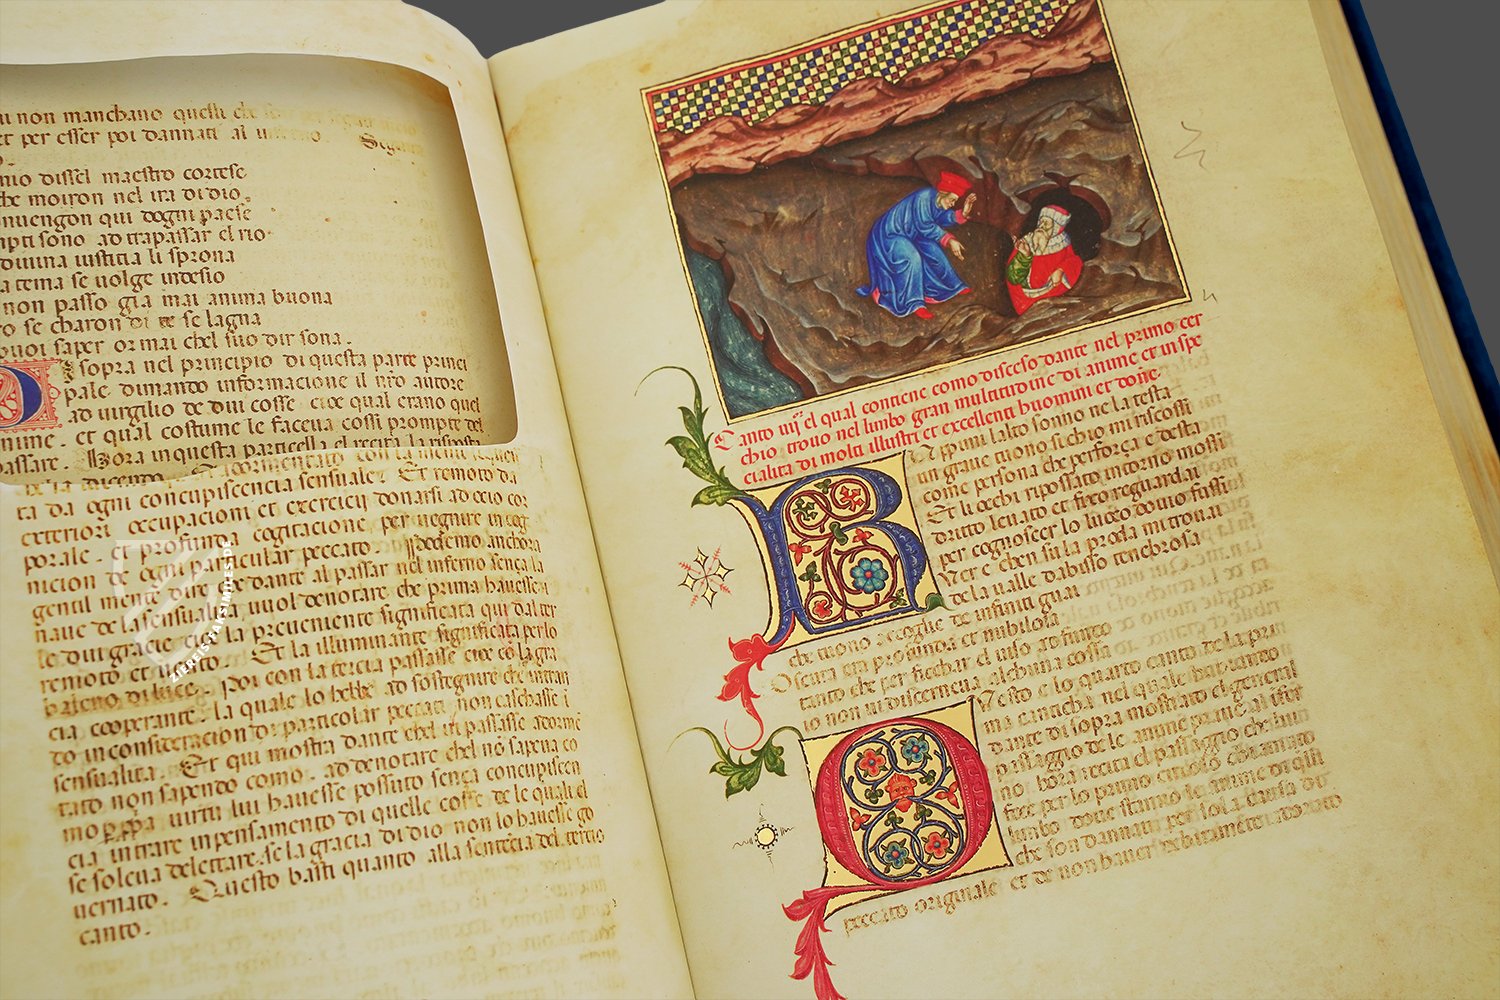 non manchano quelli che
et per esser poi dannati al
Segue
mio dissel maestro cortese
che moiron nel ira di dio
nuengon qui dogni paese
sono ad trapassar el rio
diuina iustitia li sprona
la tema se uolge in desio
non passo gia mai anima buona
se charon di te se lagna
puoi saper or mai chel suo dir sona.
sopra nel principio di questa parte princi
pale dimando informacione il nro autore
ad uirgilio de dui cosse cioe qual erano quel
anime. et qual costume le faceua cossi prompte del
passare. Hora in questa particella el recita la risposta
ta da ogni concupiscencia sensuale. Et remoto da
exteriori occupacioni et exercicij donarsi ad ocio cor
porale. et profunda cogitacione per uegnire in cog
nicion de ogni particular peccato. Podemo anchora
gentil mente dire che dante al passar nel inferno senca la
naue de la sensualita uuol denotare che prima hauesse i
le dui gracie cioe la preueniente significata qui dal ter
remoto et uento. Et la illuminante significata per lo
baleno di luce. Poi con la tercia passasse cioe con la gra
cia cooperante. la quale lo hebbe ad sostegnire che intran
do in consideracion di particolar peccati non caschasse i
sensualita. Et qui mostra dante chel in passasse adorme
tato non sapendo como. ad denotare chel no sapeua co
mo p ppa uirtu lui hauesse possuto senca concupiscen
cia intrare in pensamento di quelle cosse de le quali el
se soleua delettare. se la gracia di dio non lo hauesse go
uernato. Questo basti quanto alla sentecia del tercio
canto.
Canto iiij el qual contiene como disceso dante nel primo cer
chio trouo nel limbo gran multitudine di anime et in spe
cialita di molti illustri et excellenti huomini et done.
Ruppimi lalto sonno ne la testa
un graue tuono si chio mi riscossi
come persona che per forca e desta
Et li occhi ripossato intorno mossi
dritto leuato et fiso reguardai
per cognoscer lo luoco douio fussi
Ver e chen su la proda mi trouai
de la ualle dabisso tenebrosa
che tuono accoglie de infiniti guai
Oscura era profonda et nubilosa
tanto che per ficchar el uiso ad fundo
io non ui discerneua alchuna cossa
Questo e lo quarto canto de la pri
ma canticha nel quale hauendo
dante di sopra mostrato el general
passaggio de le anime praue al ifer
no hora recita el passaggio che lui
fece per lo primo circulo chiamato
limbo doue stanno le anime di qlli
che son dannati per sola causa di
peccato originale et de non hauer